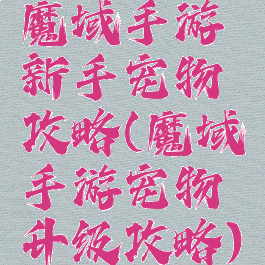 魔域手游
新手宠物
攻略(魔域
手游宠物
升级攻略)